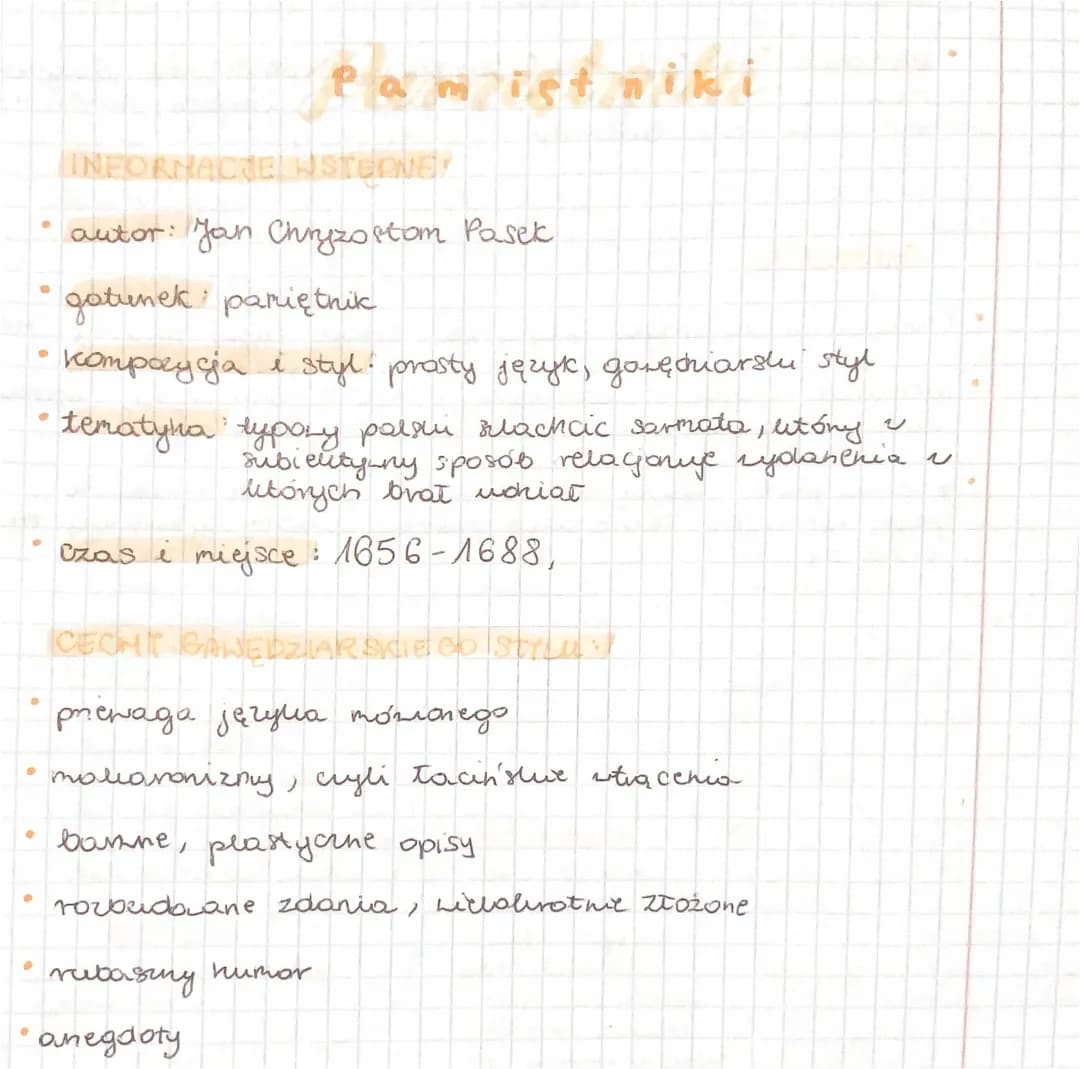 Pamiętniki
INFORMACJE WSTĘPNE:
• autor: Jan Chryzostom Pasek
• gatunek: pamiętnik
• kompozycja i styl: prosty język, gawędziarski styl
• tematyka: typowy polski szlachcic sarmata, który w
subiektywny sposób relacjonuje wydarzenia w
których brał udział
• czas i miejsce: 1656-1688,
CECHY GAWĘDZIARSKIEGO STYLU:
• przewaga języka mówionego
• makaronizmy, czyli łacińskie wtrącenia
• barwne, plastyczne opisy
• rozbudowane zdania, wielokrotnie złożone
• rubaszny humor
• anegdoty